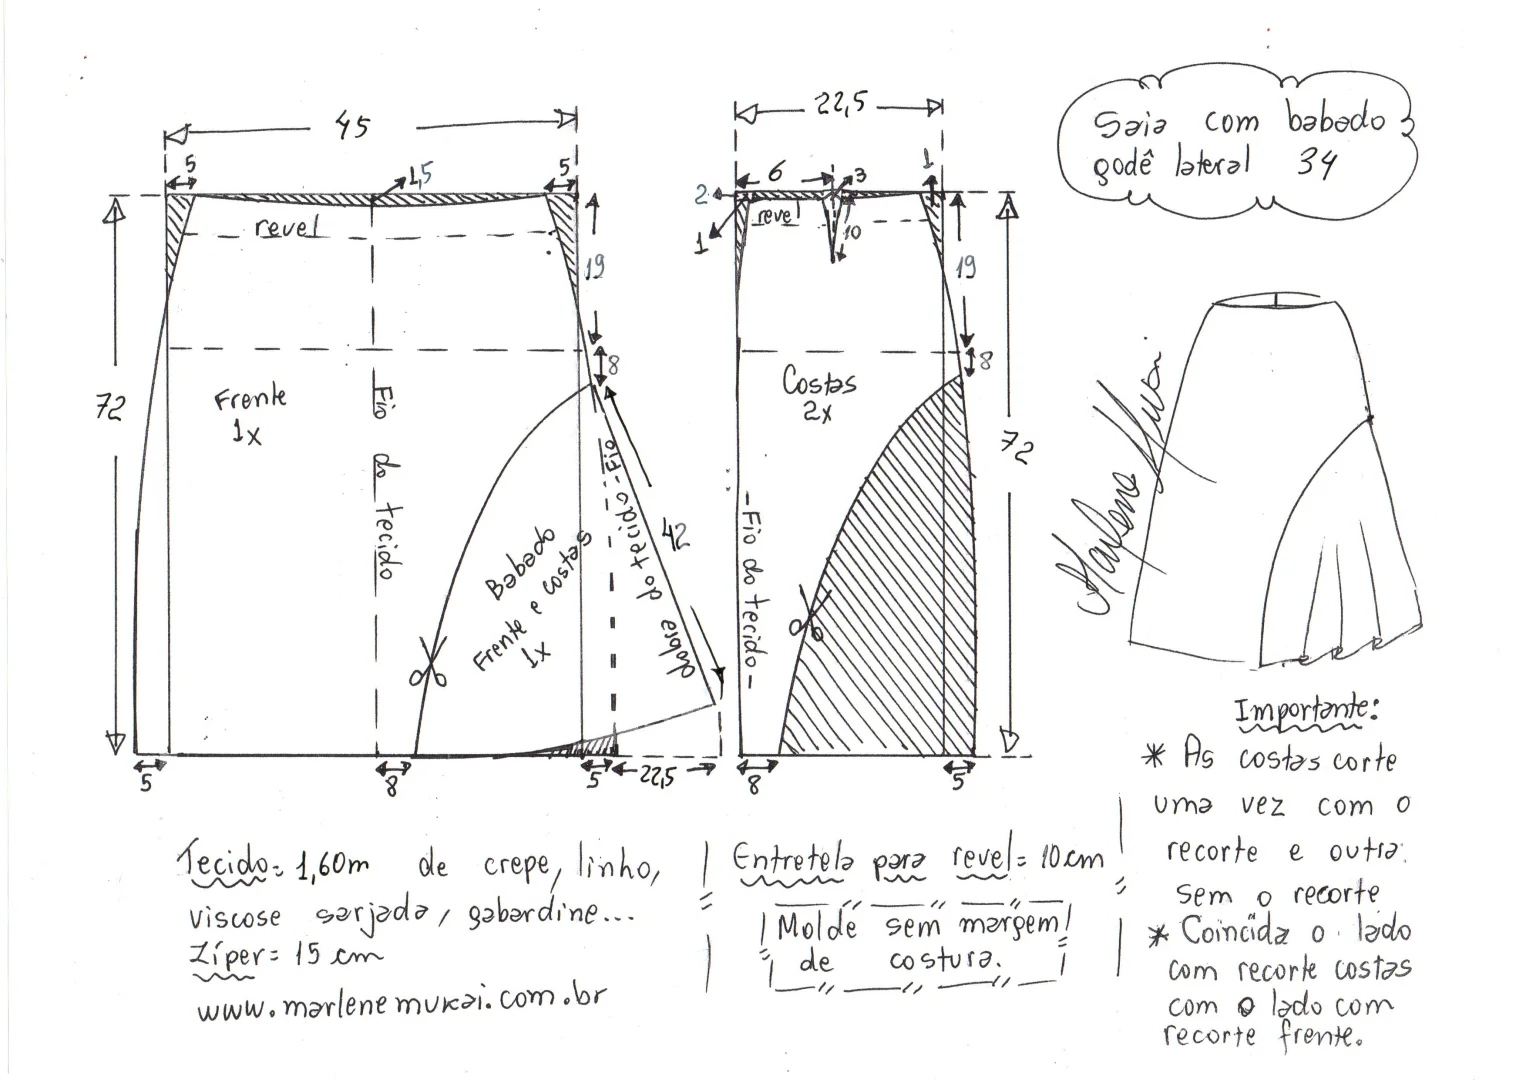 Saia com babado
godê lateral 34
45
5
1,5
5
revel
19
8
72
Frente
1x
Fio do tecido
Babado
Frente e costas
1x
Fio do tecido
dobra
42
5
8
5
22,5
22,5
6
3
1
2
1
revel
10
19
8
Costas
2x
72
-Fio do tecido-
8
5
Marlene Mukai
Importante:
* As costas corte
uma vez com o
recorte e outra
sem o recorte
* Coincida o lado
com recorte costas
com o lado com
recorte frente.
Tecido= 1,60m de crepe, linho,
viscose sarjada, gabardine...
Zíper= 15 cm
www.marlenemukai.com.br
Entretela para revel= 10cm
Molde sem margem
de costura.